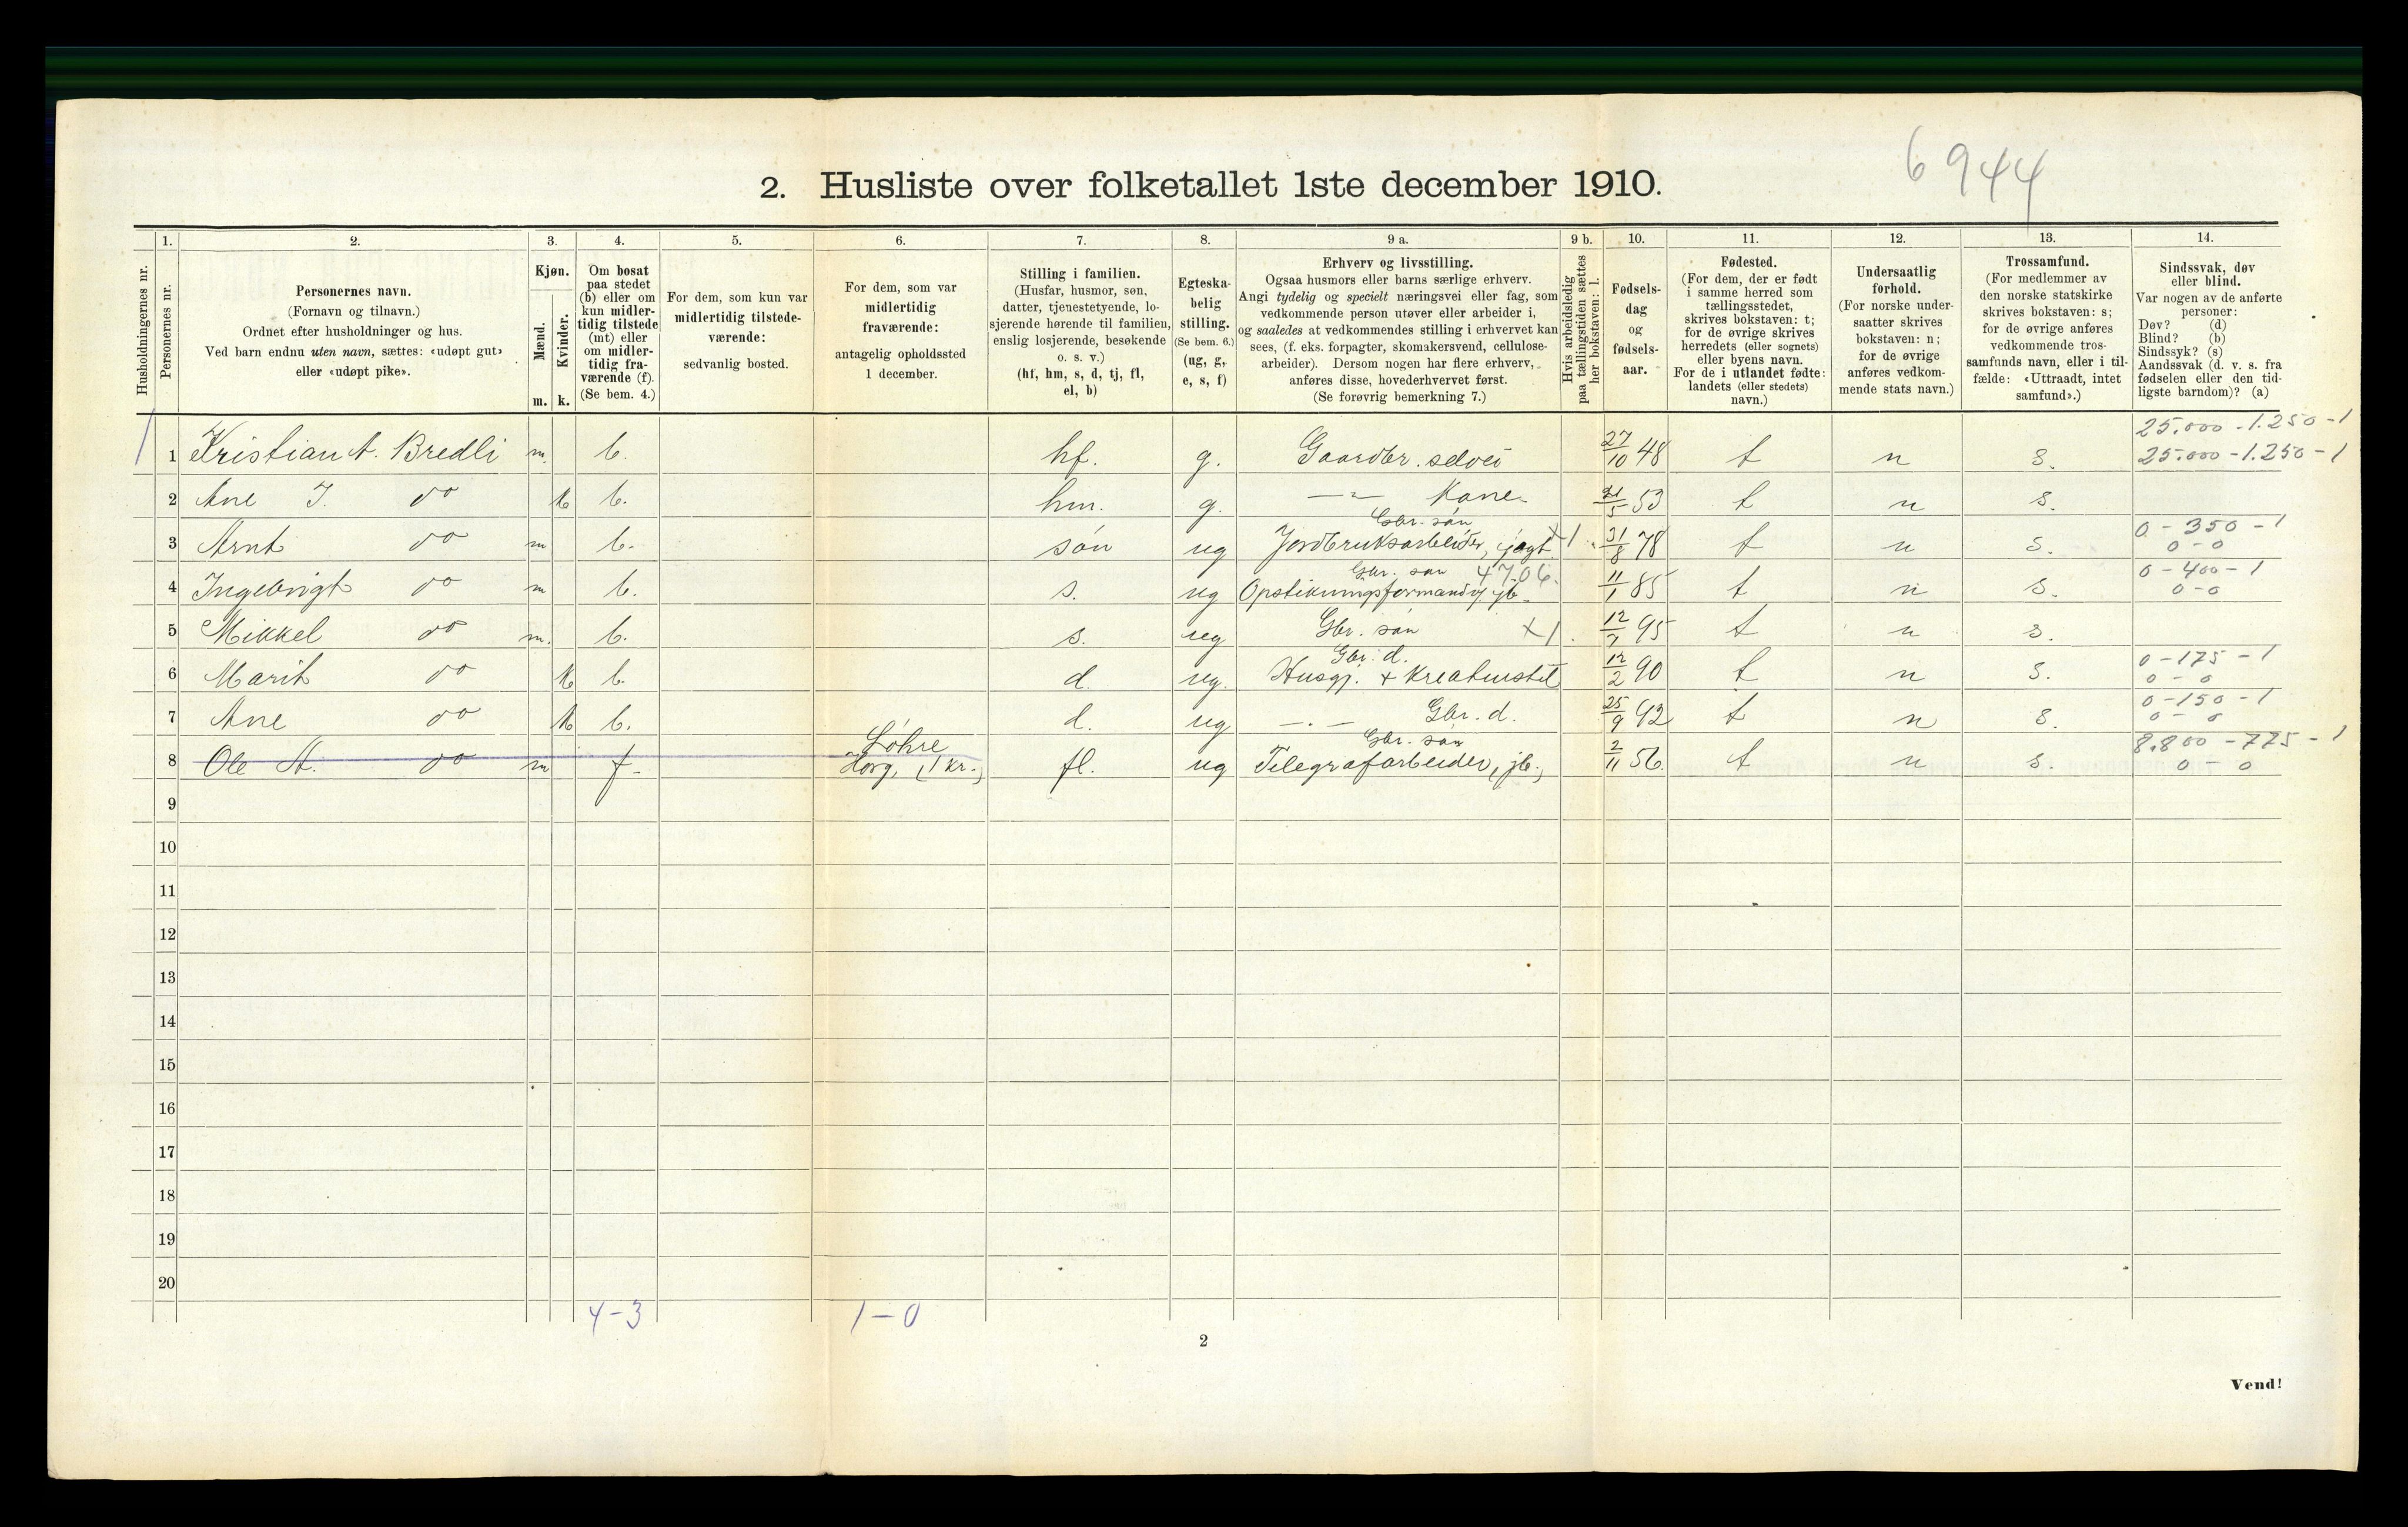 6944
2. Husliste over folketallet 1ste december 1910.
1. 2. 3. 4. 5. 6. 7. 8. 9 a. 9 b. 10. 11. 12. 13. 14.
Husholdningernes nr.
Personernes nr.
Personernes navn.
(Fornavn og tilnavn.)
Ordnet efter husholdninger og hus.
Ved barn endnu uten navn, sættes: «udøpt gut»
eller «udøpt pike».
Kjøn.
Mænd.
Kvinder.
m. k.
Om bosat
paa stedet
(b) eller om
kun midler-
tidig tilstede
(mt) eller
om midler-
tidig fra-
værende (f).
(Se bem. 4.)
For dem, som kun var
midlertidig tilstede-
værende:
sedvanlig bosted.
For dem, som var
midlertidig
fraværende:
antagelig opholdssted
1 december.
Stilling i familien.
(Husfar, husmor, søn,
datter, tjenestetyende, lo-
sjerende hørende til familien,
enslig losjerende, besøkende
o. s. v.)
(hf, hm, s, d, tj, fl,
el, b)
Egteska-
belig
stilling.
(Se bem. 6.)
(ug, g,
e, s, f)
Erhverv og livsstilling.
Ogsaa husmors eller barns særlige erhverv.
Angi tydelig og specielt næringsvei eller fag, som
vedkommende person utøver eller arbeider i,
og saaledes at vedkommendes stilling i erhvervet kan
sees, (f. eks. forpagter, skomakersvend, cellulose-
arbeider). Dersom nogen har flere erhverv,
anføres disse, hovederhvervet først.
(Se forøvrig bemerkning 7.)
Hvis arbeidsledig
paa tællingstiden sættes
her bokstaven: l.
Fødsels-
dag
og
fødsels-
aar.
Fødested.
(For dem, der er født
i samme herred som
tællingsstedet,
skrives bokstaven: t;
for de øvrige skrives
herredets (eller sognets)
eller byens navn.
For de i utlandet fødte:
landets (eller stedets)
navn.)
Undersaatlig
forhold.
(For norske under-
saatter skrives
bokstaven: n;
for de øvrige
anføres vedkom-
mende stats navn.)
Trossamfund.
(For medlemmer av
den norske statskirke
skrives bokstaven: s;
for de øvrige anføres
vedkommende tros-
samfunds navn, eller i til-
fælde: «Uttraadt, intet
samfund».)
Sindssvak, døv
eller blind.
Var nogen av de anførte
personer:
Døv? (d)
Blind? (b)
Sindssyk? (s)
Aandssvak (d. v. s. fra
fødselen eller den tid-
ligste barndom)? (a)
25.000 - 1.250 - 1
1 1 Kristian A. Bredli m. b. hf. g. Gaardbr. selvei 27/10 48 t n s. 25.000 - 1.250 - 1
2 Ane J. do k b. hm. g. —"— Kone 21/5 53 t n s.
Gbr. søn 0 - 350 - 1
3 Arnt do m b. søn ug Jordbruksarbeider, jagt x1. 31/8 78 t n s. 0 - 0
Gbr. søn 4706. 0 - 400 - 1
4 Ingebrigt do m b. s. ug Opstikningsformand v/ jb. 11/1 85 t n s. 0 - 0
5 Mikkel do m. b. s. ug Gbr. søn x1. 12/7 95 t n s.
Gbr. d. 0 - 175 - 1
6 Marit do k b. d. ug. Husgj. + kreaturstel 12/2 90 t n s. 0 - 0
0 - 150 - 1
7 Ane do k b. d. ug —"— Gbr. d. 25/9 92 t n s. 0 - 0
Løhre Gbr. søn 8.800 - 775 - 1
8 Ole A. do m f. Horg, (1 kr.) fl. ug Telegrafarbeider, jb., 2/11 56. t n s. 0 - 0
9
10
11
12
13
14
15
16
17
18
19
20
4 - 3 1 - 0
2
Vend!